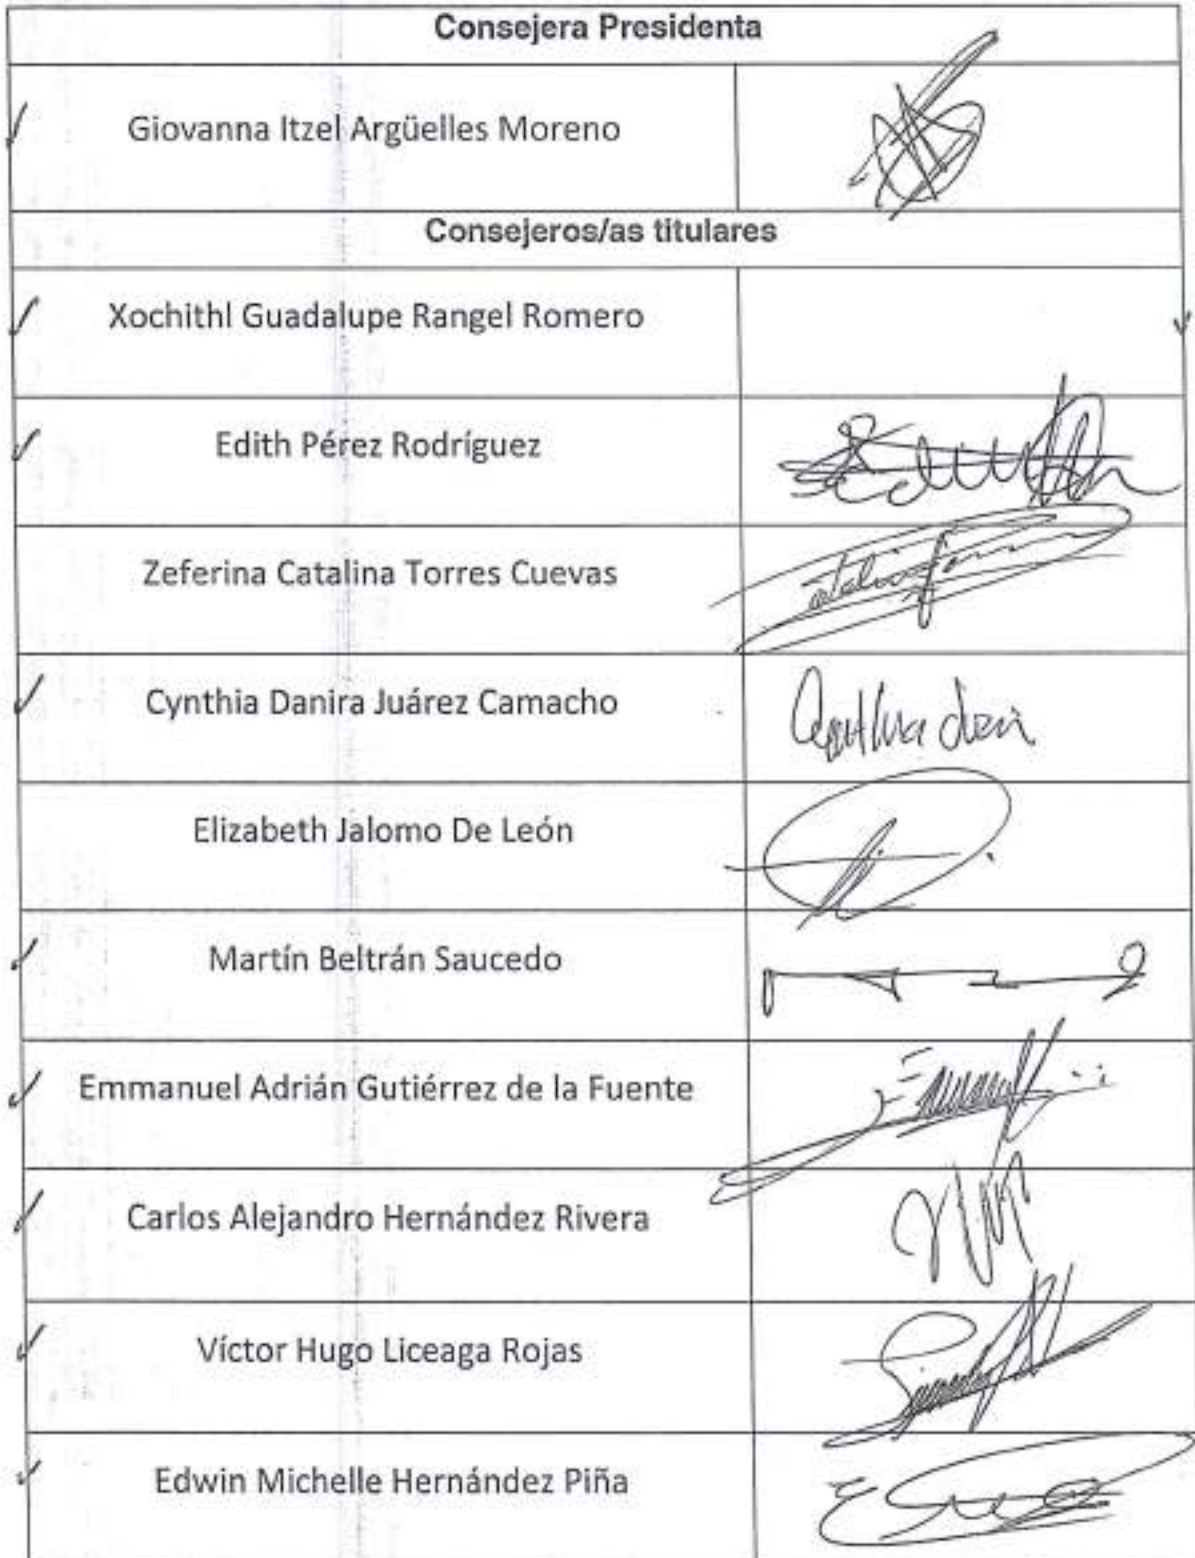 Consejera Presidenta
Giovanna Itzel Argüelles Moreno
Consejeros/as titulares
Xochithl Guadalupe Rangel Romero
Edith Pérez Rodríguez
Zeferina Catalina Torres Cuevas
Cynthia Danira Juárez Camacho
Elizabeth Jalomo De León
Martín Beltrán Saucedo
Emmanuel Adrián Gutiérrez de la Fuente
Carlos Alejandro Hernández Rivera
Víctor Hugo Liceaga Rojas
Edwin Michelle Hernández Piña